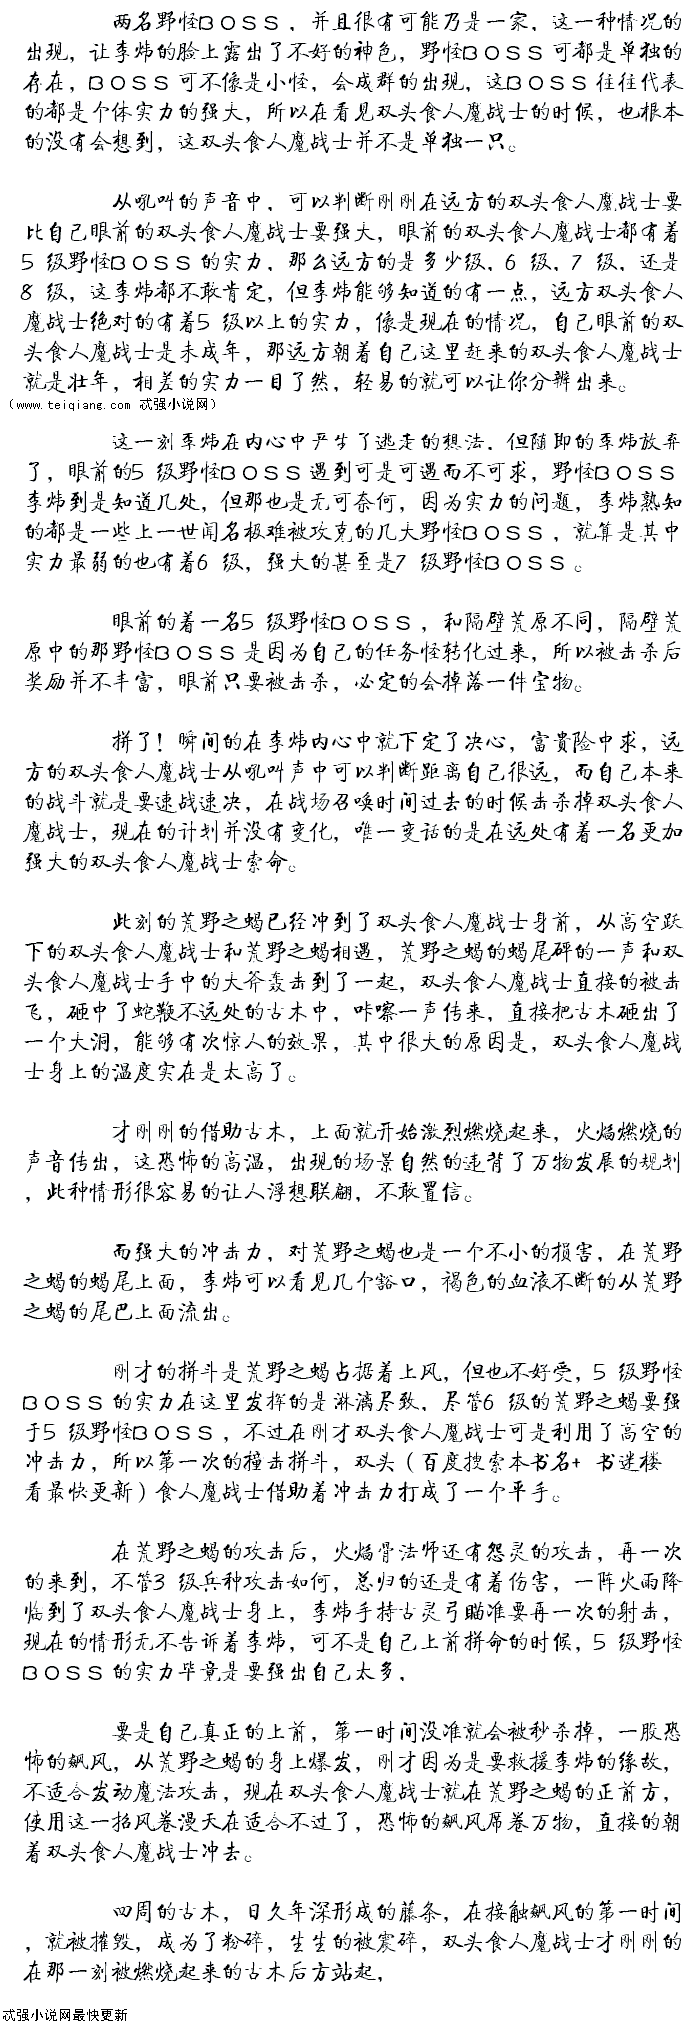 两名野怪BOSS，并且很有可能乃是一家，这一种情况的
出现，让李炜的脸上露出了不好的神色，野怪BOSS可都是单独的
存在，BOSS可不像是小怪，会成群的出现，这BOSS往往代表
的都是个体实力的强大，所以在看见双头食人魔战士的时候，也根本
的没有会想到，这双头食人魔战士并不是单独一只。
从吼叫的声音中，可以判断刚刚在远方的双头食人魔战士要
比自己眼前的双头食人魔战士要强大，眼前的双头食人魔战士都有着
5级野怪BOSS的实力，那么远方的是多少级，6级，7级，还是
8级，这李炜都不敢肯定，但李炜能够知道的有一点，远方双头食人
魔战士绝对的有着5级以上的实力，像是现在的情况，自己眼前的双
头食人魔战士是未成年，那远方朝着自己这里赶来的双头食人魔战士
就是壮年，相差的实力一目了然，轻易的就可以让你分辨出来。
（www.teiqiang.com 忒强小说网）
这一刻李炜在内心中产生了逃走的想法，但随即的李炜放弃
了，眼前的5级野怪BOSS遇到可是可遇而不可求，野怪BOSS
李炜到是知道几处，但那也是无可奈何，因为实力的问题，李炜熟知
的都是一些上一世闻名极难被攻克的几大野怪BOSS，就算是其中
实力最弱的也有着6级，强大的甚至是7级野怪BOSS。
眼前的着一名5级野怪BOSS，和隔壁荒原不同，隔壁荒
原中的那野怪BOSS是因为自己的任务怪转化过来，所以被击杀后
奖励并不丰富，眼前只要被击杀，必定的会掉落一件宝物。
拼了！瞬间的在李炜内心中就下定了决心，富贵险中求，远
方的双头食人魔战士从吼叫声中可以判断距离自己很远，而自己本来
的战斗就是要速战速决，在战场召唤时间过去的时候击杀掉双头食人
魔战士，现在的计划并没有变化，唯一变话的是在远处有着一名更加
强大的双头食人魔战士索命。
此刻的荒野之蝎已经冲到了双头食人魔战士身前，从高空跃
下的双头食人魔战士和荒野之蝎相遇，荒野之蝎的蝎尾砰的一声和双
头食人魔战士手中的大斧轰击到了一起，双头食人魔战士直接的被击
飞，砸中了蛇鞭不远处的古木中，咔嚓一声传来，直接把古木砸出了
一个大洞，能够有次惊人的效果，其中很大的原因是，双头食人魔战
士身上的温度实在是太高了。
才刚刚的借助古木，上面就开始激烈燃烧起来，火焰燃烧的
声音传出，这恐怖的高温，出现的场景自然的违背了万物发展的规划
，此种情形很容易的让人浮想联翩，不敢置信。
而强大的冲击力，对荒野之蝎也是一个不小的损害，在荒野
之蝎的蝎尾上面，李炜可以看见几个豁口，褐色的血液不断的从荒野
之蝎的尾巴上面流出。
刚才的拼斗是荒野之蝎占据着上风，但也不好受，5级野怪
BOSS的实力在这里发挥的是淋漓尽致，尽管6级的荒野之蝎要强
于5级野怪BOSS，不过在刚才双头食人魔战士可是利用了高空的
冲击力，所以第一次的撞击拼斗，双头（百度搜索本书名+ 书迷楼
看最快更新）食人魔战士借助着冲击力打成了一个平手。
在荒野之蝎的攻击后，火焰骨法师还有怨灵的攻击，再一次
的来到，不管3级兵种攻击如何，总归的还是有着伤害，一阵火雨降
临到了双头食人魔战士身上，李炜手持古灵弓瞄准要再一次的射击，
现在的情形无不告诉着李炜，可不是自己上前拼命的时候，5级野怪
BOSS的实力毕竟是要强出自己太多，
要是自己真正的上前，第一时间没准就会被秒杀掉，一股恐
怖的飙风，从荒野之蝎的身上爆发，刚才因为是要救援李炜的缘故，
不适合发动魔法攻击，现在双头食人魔战士就在荒野之蝎的正前方，
使用这一招风卷漫天在适合不过了，恐怖的飙风席卷万物，直接的朝
着双头食人魔战士冲去。
四周的古木，日久年深形成的藤条，在接触飙风的第一时间
，就被摧毁，成为了粉碎，生生的被震碎，双头食人魔战士才刚刚的
在那一刻被燃烧起来的古木后方站起，
忒强小说网最快更新